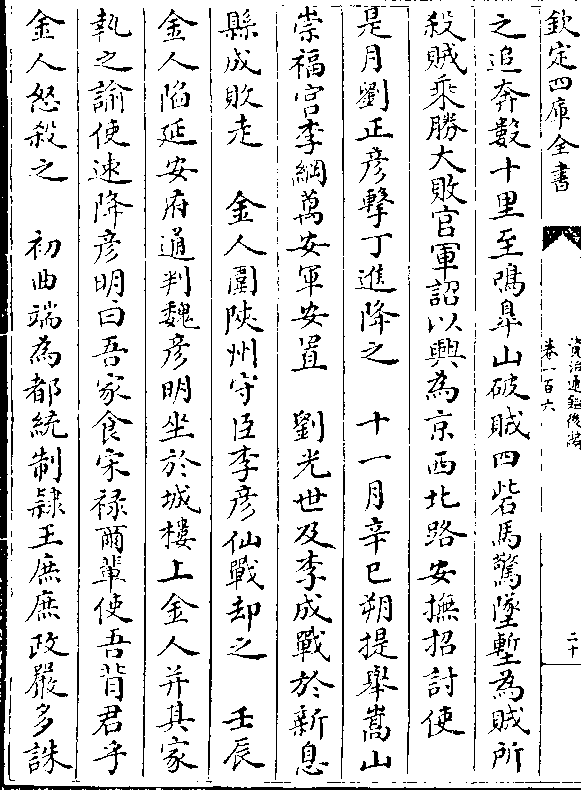 欽定四庫全書
資治通鑑後編
卷一百六
二十
之追奔數十里至鳴皐山破賊四砦馬驚墜塹為賊所
殺賊乘勝大敗官軍詔以興為京西北路安撫招討使
是月劉正彥擊丁進降之　十一月辛巳朔提舉嵩山
崇福宮李綱萬安軍安置　劉光世及李成戰於新息
縣成敗走　金人圍陝州守臣李彥仙戰却之　壬辰
金人陷延安府通判魏彥明坐於城樓上金人并其家
執之諭使速降彥明曰吾家食宋祿爾輩使吾背君乎
金人怒殺之　初曲端為都統制隷王庶庶政嚴多誅